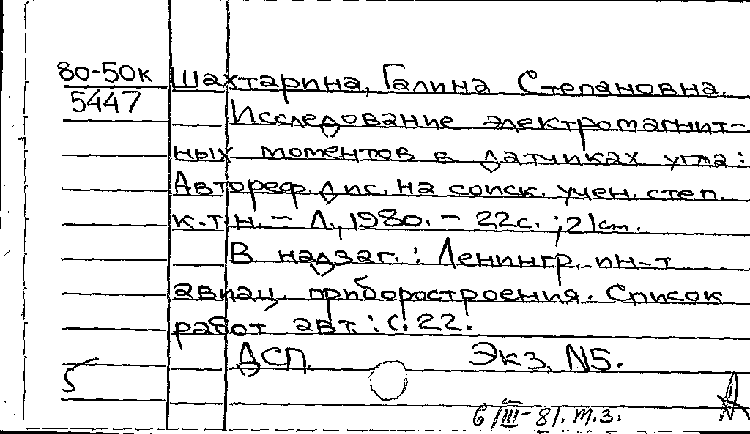 80-50к Шахтарина, Галина Степановна.
5447 Исследование электромагнит-
ных моментов в датчиках угла:
Автореф. дис. на соиск. учен. степ.
к.т.н. - Л., 1980. - 22с.; 21см.
В надзаг.: Ленингр. ин-т
авиац. приборостроения. Список
работ авт.: с. 22.
ДСП. Экз. N5.
5
6/III-81. т.з.